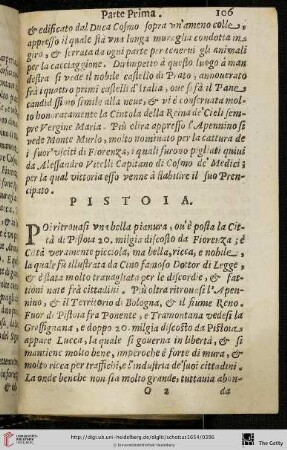 Parte Prima. 106
& edificato dal Duca Cosmo sopra vn'ameno colle,
appresso il quale stà vna lunga muraglia condotta in
giro, & serrata da ogni parte per tenerui gli animali
per la cacciaggione. Dirimpetto à questo luogo à man
destra si vede il nobile castello di Prato, annouerato
frà i quattro primi castelli d'Italia, oue si fà il Pane
candidissimo simile alla neue, & vi è conseruata mol-
to honoratamente la Cintola della Reina de' Cieli sem-
pre Vergine Maria. Più oltra appresso l'Apennino si
vede Monte Murlo, molto nominato per la cattura de
i fuor'vsciti di Fiorenza, i quali furono pigliati quiui
da Alessandro Vitelli Capitano di Cosmo de' Medici;
per la qual vittoria esso venne à stabilire il suo Pren-
cipato.
PISTOIA.
Poi ritrouasi vna bella pianura, ou'è posta la Cit-
tà di Pistoia 20. milgia discosto da Fiorenza; è
Città veramente picciola, ma bella, ricca, e nobile,
la quale fù illustrata da Cino famoso Dottor di Legge,
& è stata molto trauagliata per le discordie, & fat-
tioni nate frà cittadini. Più oltra ritrouasi l'Apen-
nino, & il Territorio di Bologna, & il fiume Reno.
Fuor di Pistoia frà Ponente, e Tramontana vedesi la
Grossignana, e doppo 20. milgia discosto da Pistoia
appare Lucca, la quale si gouerna in libertà, & si
mantiene molto bene, imperoche è forte di mura, &
molto ricca per traffichi, e l'industria de' suoi cittadini.
La onde benche non sia molto grande, tuttauia abon-
O 2 da
http://digi.ub.uni-heidelberg.de/diglit/schottus1654/0306
© Universitätsbibliothek Heidelberg
The Getty